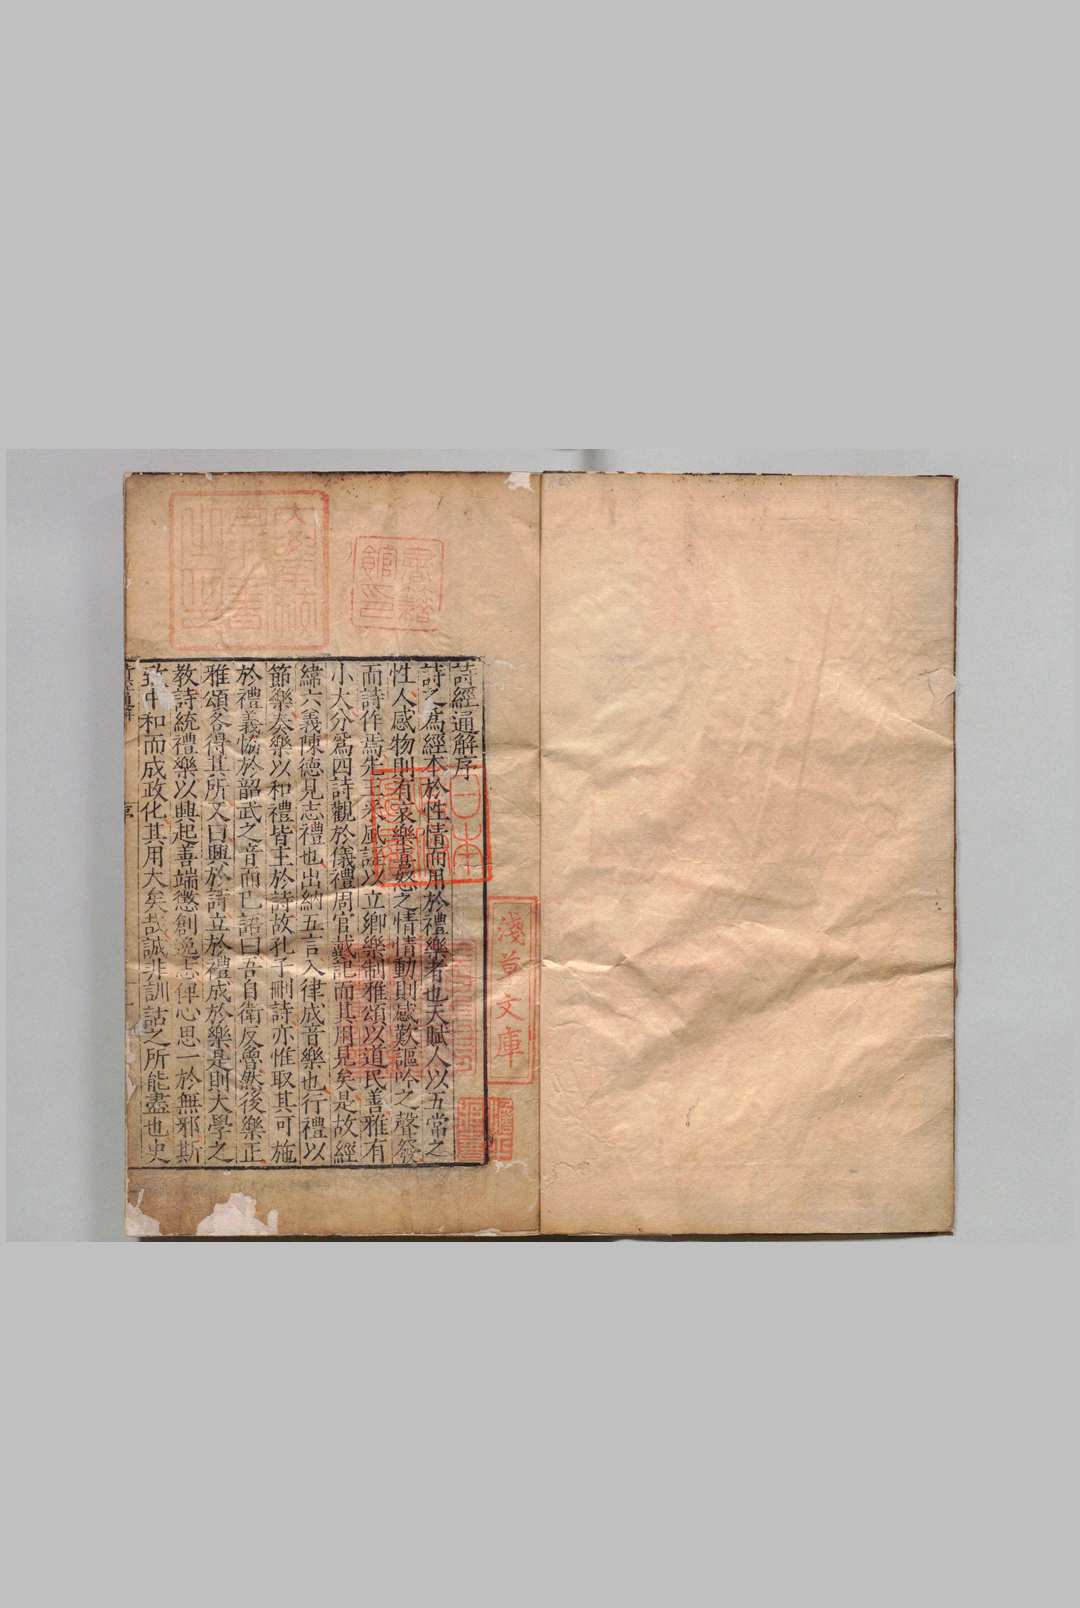 詩經通解序
詩之爲經本於性情而用於禮樂者也天賦人以五常之
性人感物則有哀樂喜怒之情情動則感歎謳吟之聲發
而詩作焉先王采風謠以立卿樂制雅頌以道民善雅有
小大分爲四詩觀於儀禮周官戴記而其用見矣是故經
緯六義陳德見志禮也出納五言入律成音樂也行禮以
節樂奏樂以和禮皆主於詩故孔子刪詩亦惟取其可施
於禮義恊於韶武之音而巳語曰吾自衛反魯然後樂正
雅頌各得其所又曰興於詩立於禮成於樂是則大學之
教詩統禮樂以興起善端懲創逸志俾心思一於無邪斯
致中和而成政化其用大矣哉誠非訓詁之所能盡也史
序
書籍館印
日本
淺草文庫